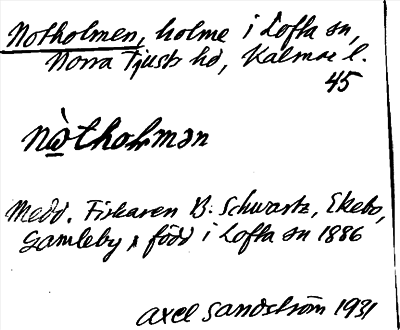 Notholmen, holme i Lofta sn,
Norra Tjusts hd, Kalmar l.
45
nòtholmən
Medd. Fiskaren B. Schwartz, Ekebo,
Gamleby, född i Lofta sn 1886
Axel Sandström 1931